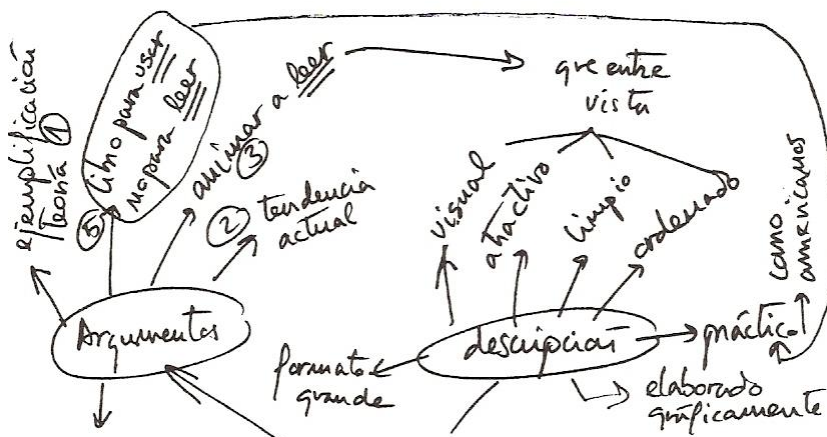 ejemplificación
teoría ①
libro para usar
no para leer
⑤
animar a leer
③
② tendencia
actual
que entre
vista
visual
atractivo
limpio
ordenado
como
americanos
Argumentos
descripción
práctico
formato
grande
elaborado
gráficamente